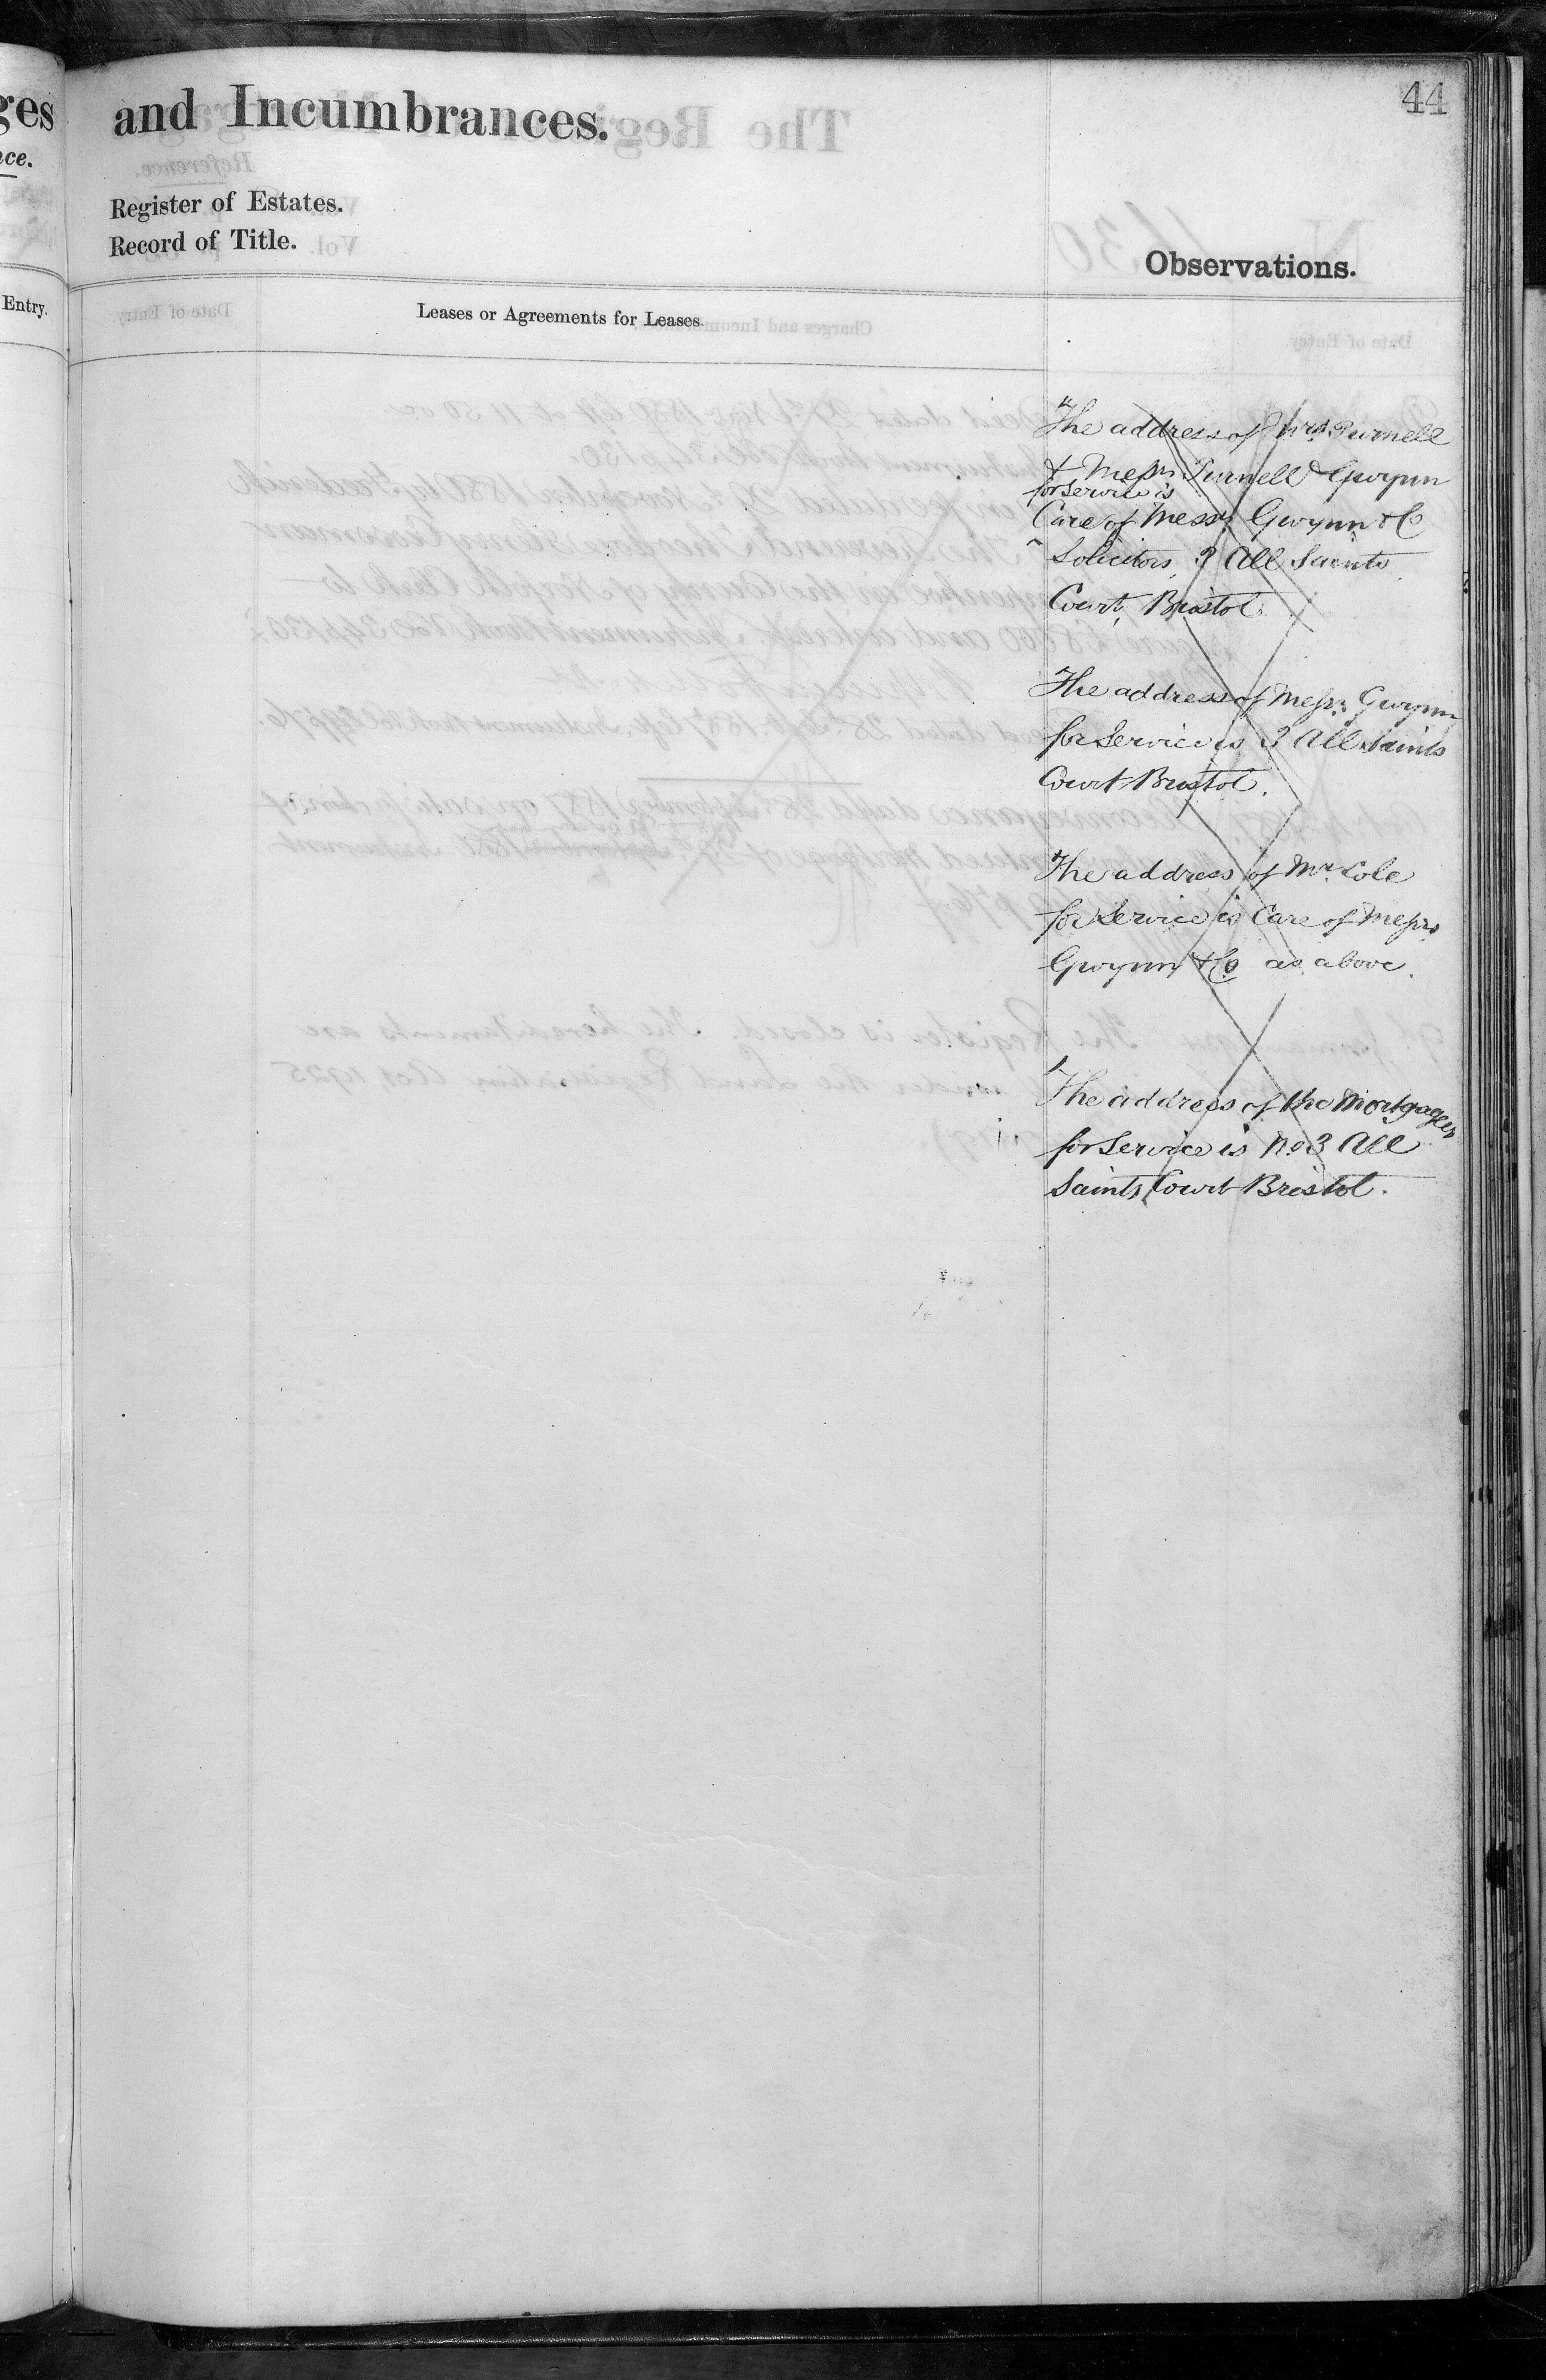 44
ges
and Incumbrances.
nce.
Register of Estates.
Record of Title.
Observations.
Entry.
Leases or Agreements for Leases.
The address of Mrs. Purnell
& Messrs. Purnell & Gwynn
for Service is
Care of Messrs Gwynn & Co
Solicitors, 3 All Saints
Court, Bristol.
The address of Messrs. Gwynn
for Service is 3 All Saints
Court Bristol.
The address of Mr. Cole
for Service is Care of Messrs
Gwynn & Co. as above.
The address of the Mortgagees
for Service is No. 3 All
Saints Court Bristol.